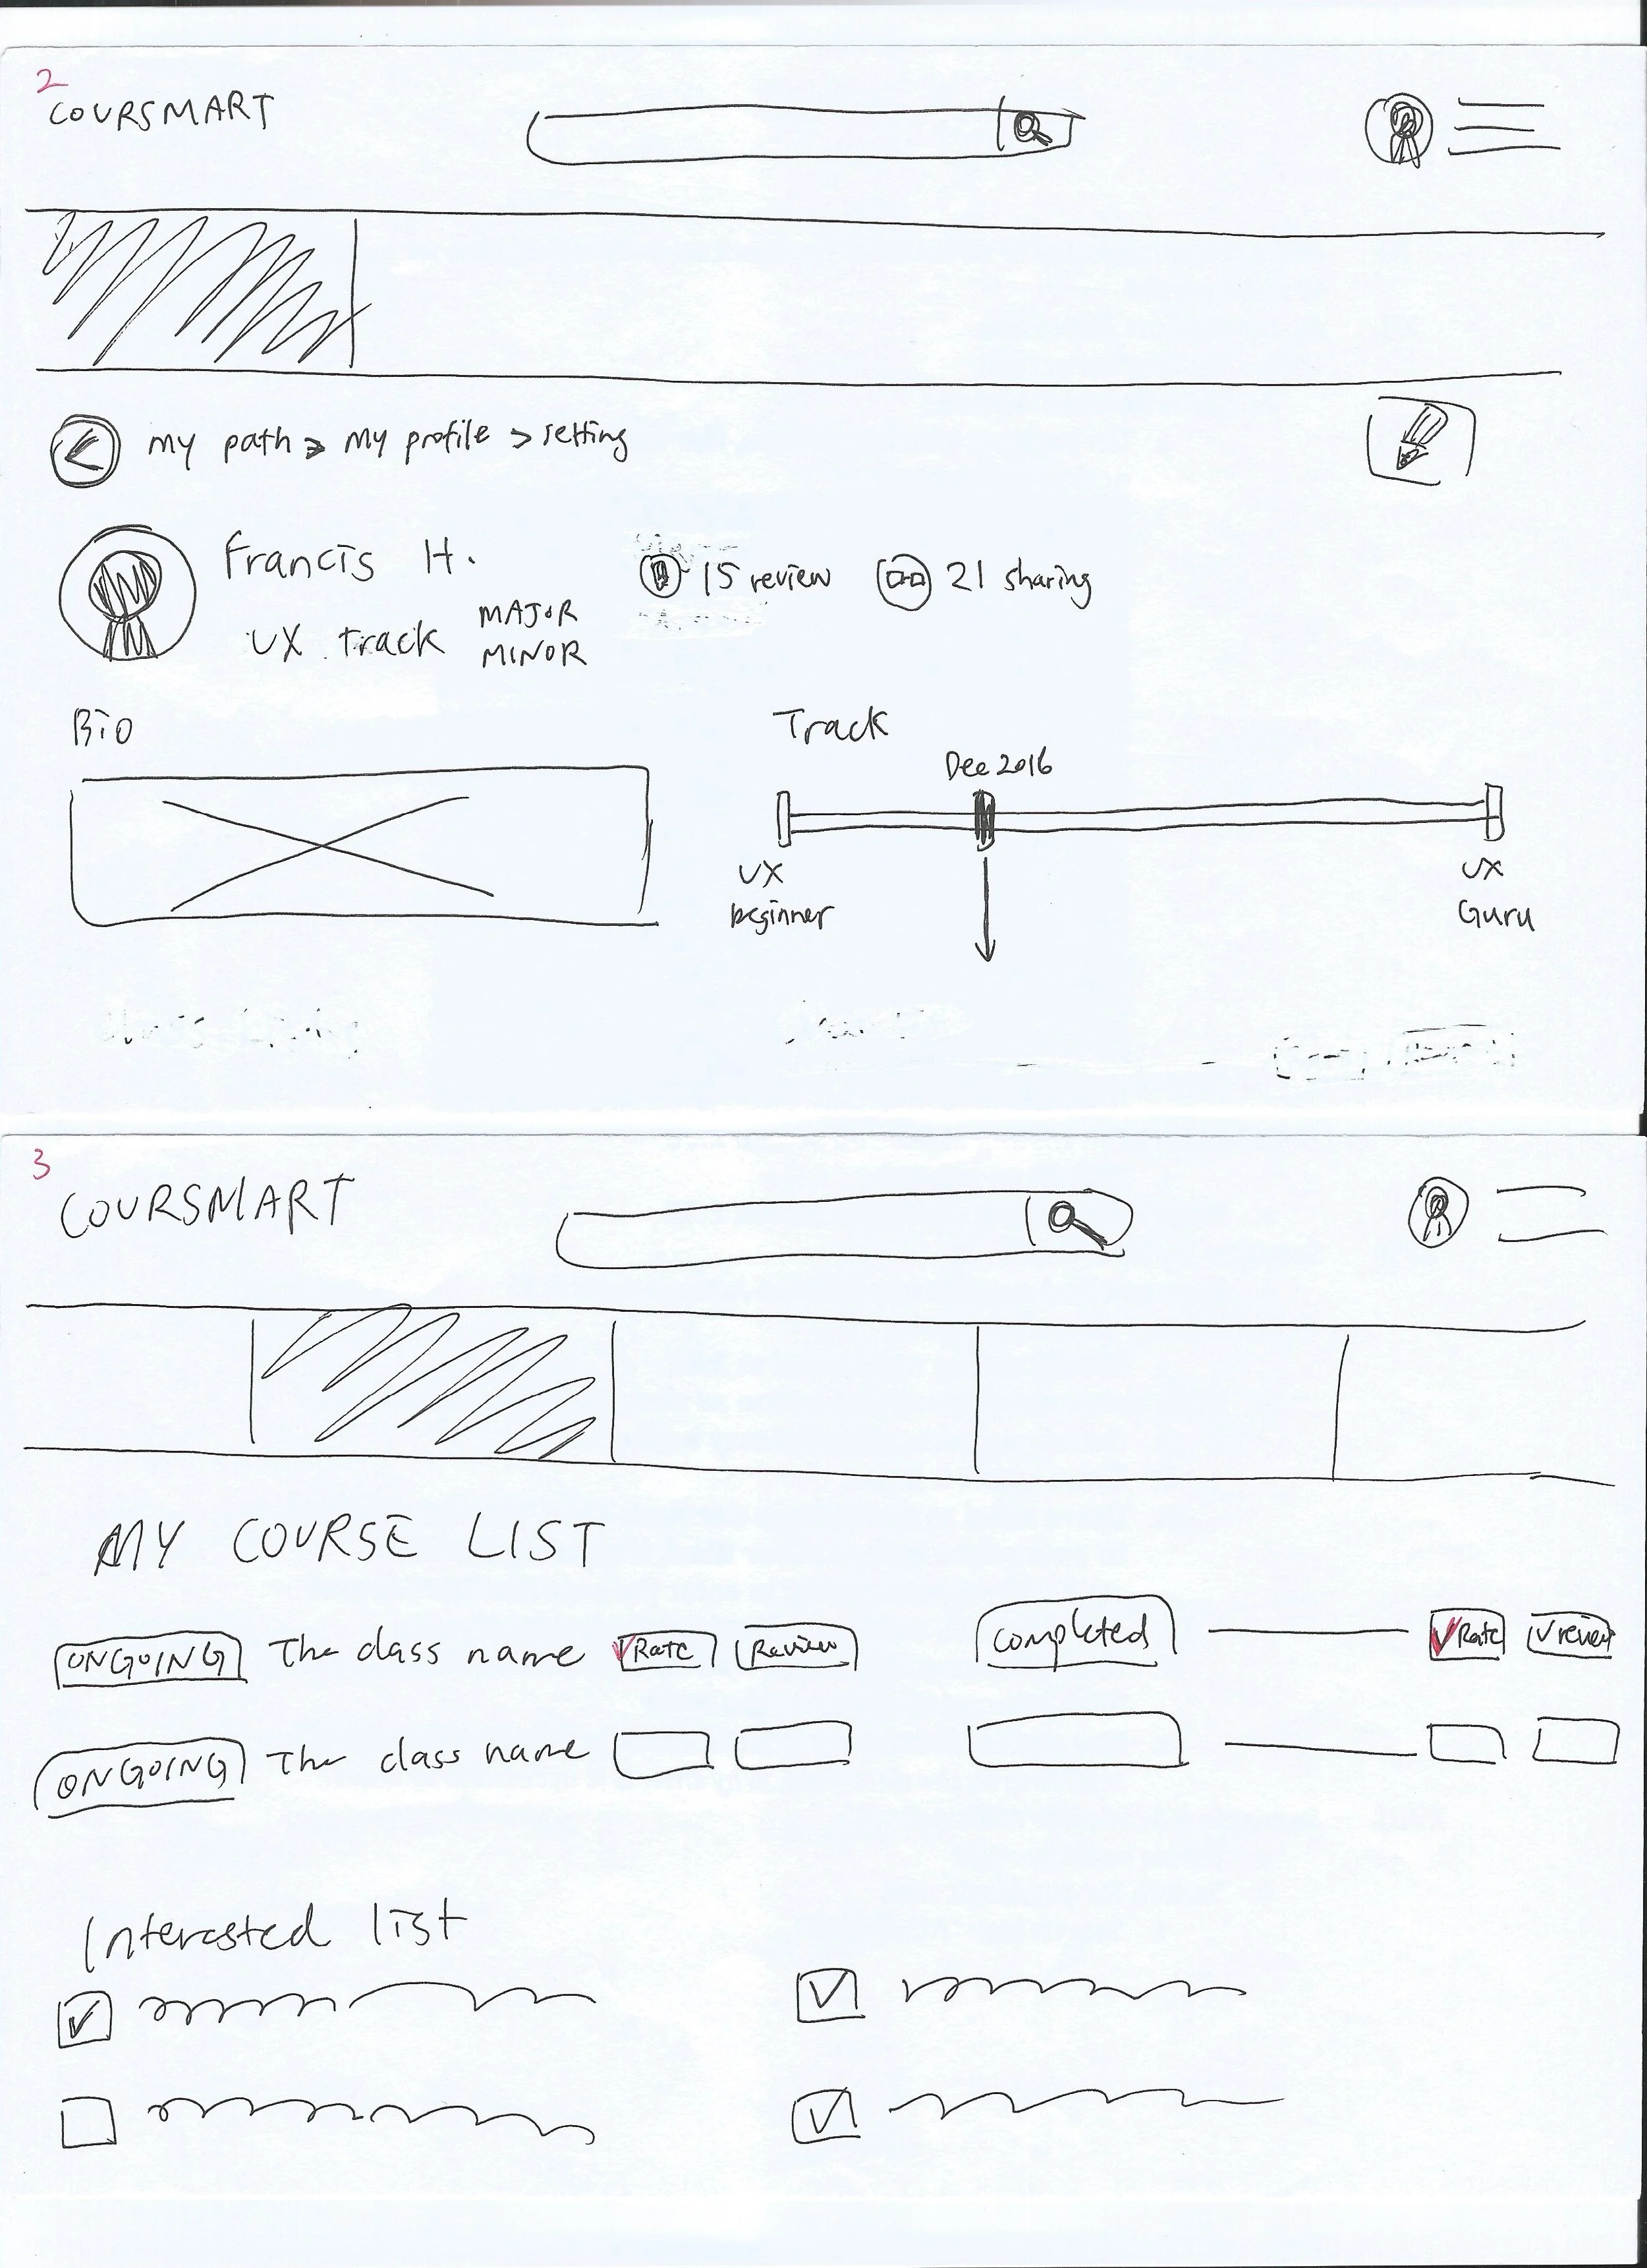 2
COURSMART
my path > my profile > setting
Francis H.
15 review 21 sharing
UX track MAJOR
MINOR
Bio
Track
Dec 2016
UX
beginner
UX
Guru
3
COURSMART
MY COURSE LIST
ONGOING The class name Rate Review
completed Rate review
ONGOING The class name
Interested list